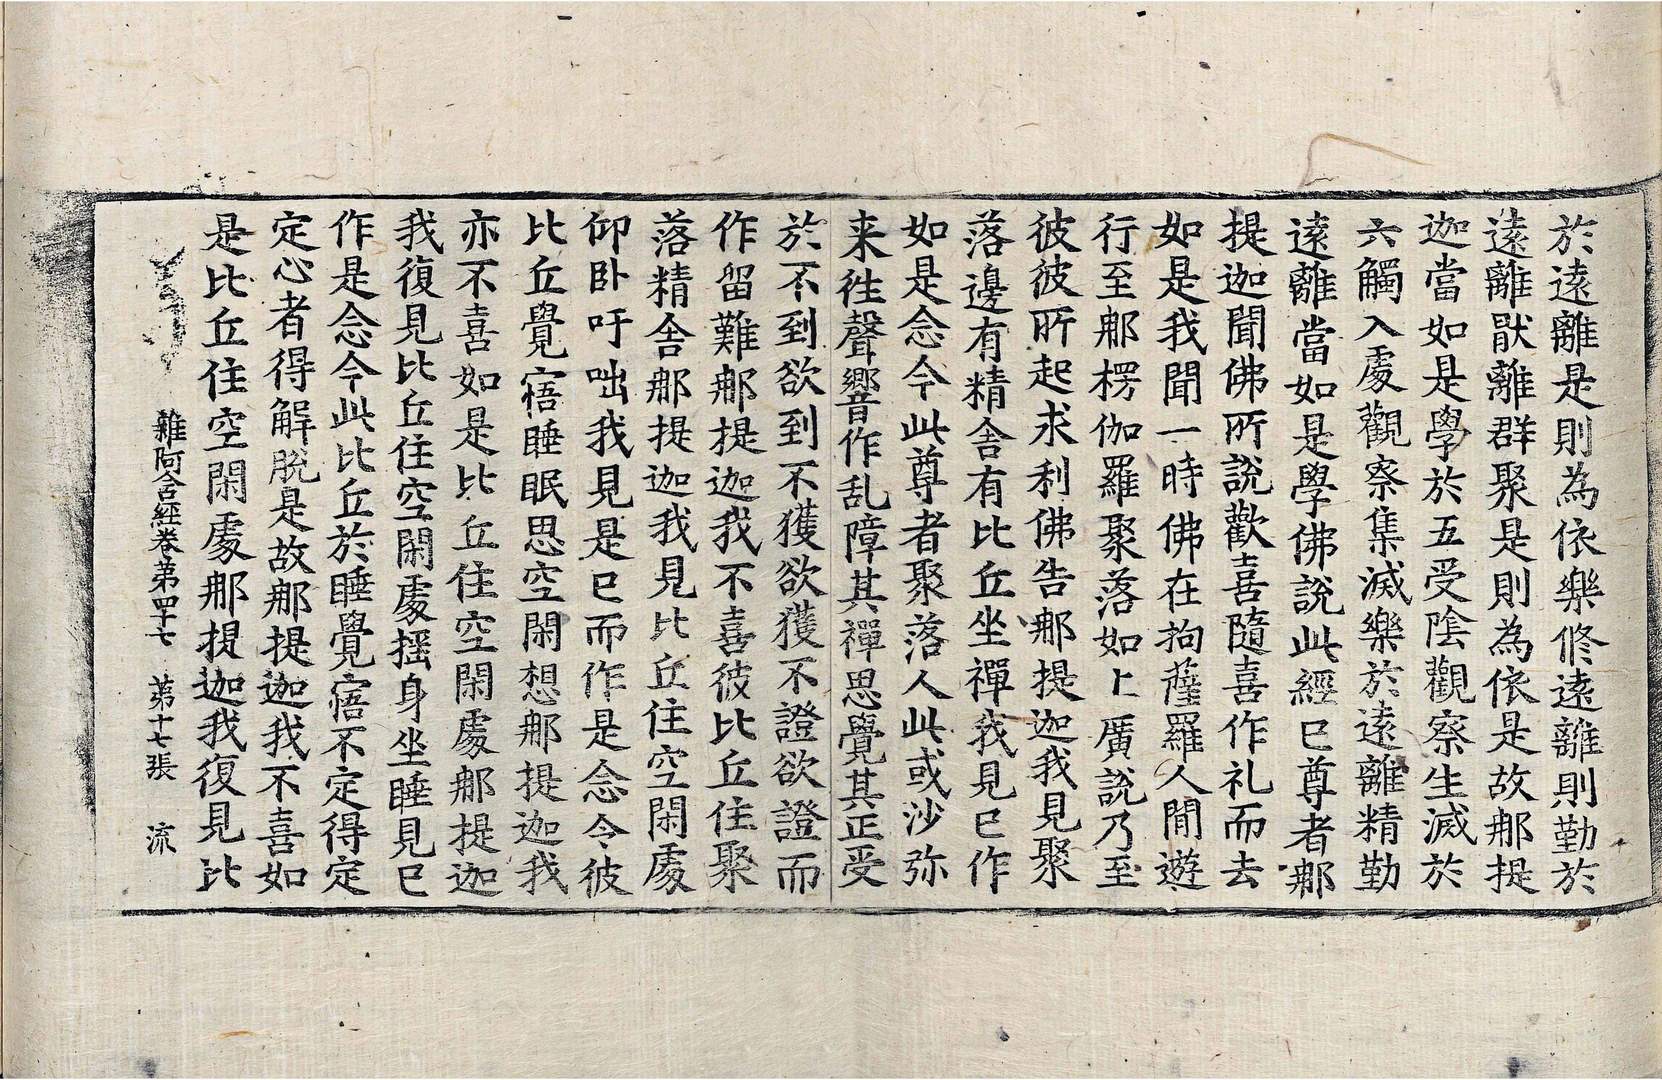 於遠離是則為依樂修遠離則勤於
遠離猒離群聚是則為依是故䣧提
迦當如是學於五受陰觀察生滅於
六觸入處觀察集滅樂於遠離精勤
遠離當如是學佛說此經已尊者䣧
提迦聞佛所說歡喜隨喜作礼而去
如是我聞一時佛在拘薩羅人間遊
行至䣧楞伽羅聚落如上廣說乃至
彼彼所起求利佛告䣧提迦我見聚
落邊有精舍有比丘坐禪我見已作
如是念今此尊者聚落人此或沙弥
来往聲響作乱障其禪思覺其正受
於不到欲到不獲欲獲不證欲證而
作留難䣧提迦我不喜彼比丘住聚
落精舍䣧提迦我見比丘住空閑處
仰卧吁咄我見是已而作是念今彼
比丘覺寤睡眠思空閑想䣧提迦我
亦不喜如是比丘住空閑處䣧提迦
我復見比丘住空閑處揺身坐睡見已
作是念今此比丘於睡覺寤不定得定
定心者得解脫是故䣧提迦我不喜如
是比丘住空閑處䣧提迦我復見比
雜阿含經卷第四十七 第十七張 流